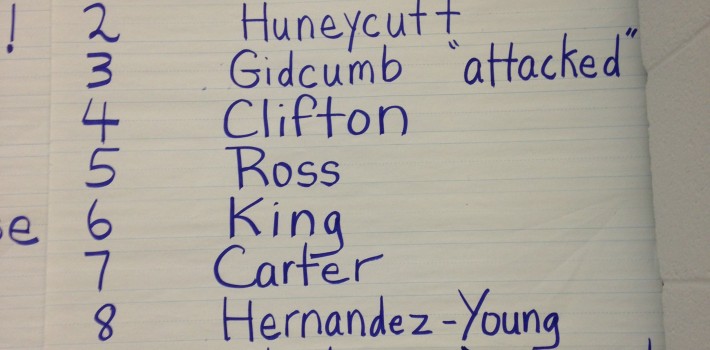 ! 2 Huneycutt
3 Gidcumb "attacked"
4 Clifton
5 Ross
e 6 King
7 Carter
8 Hernandez-Young